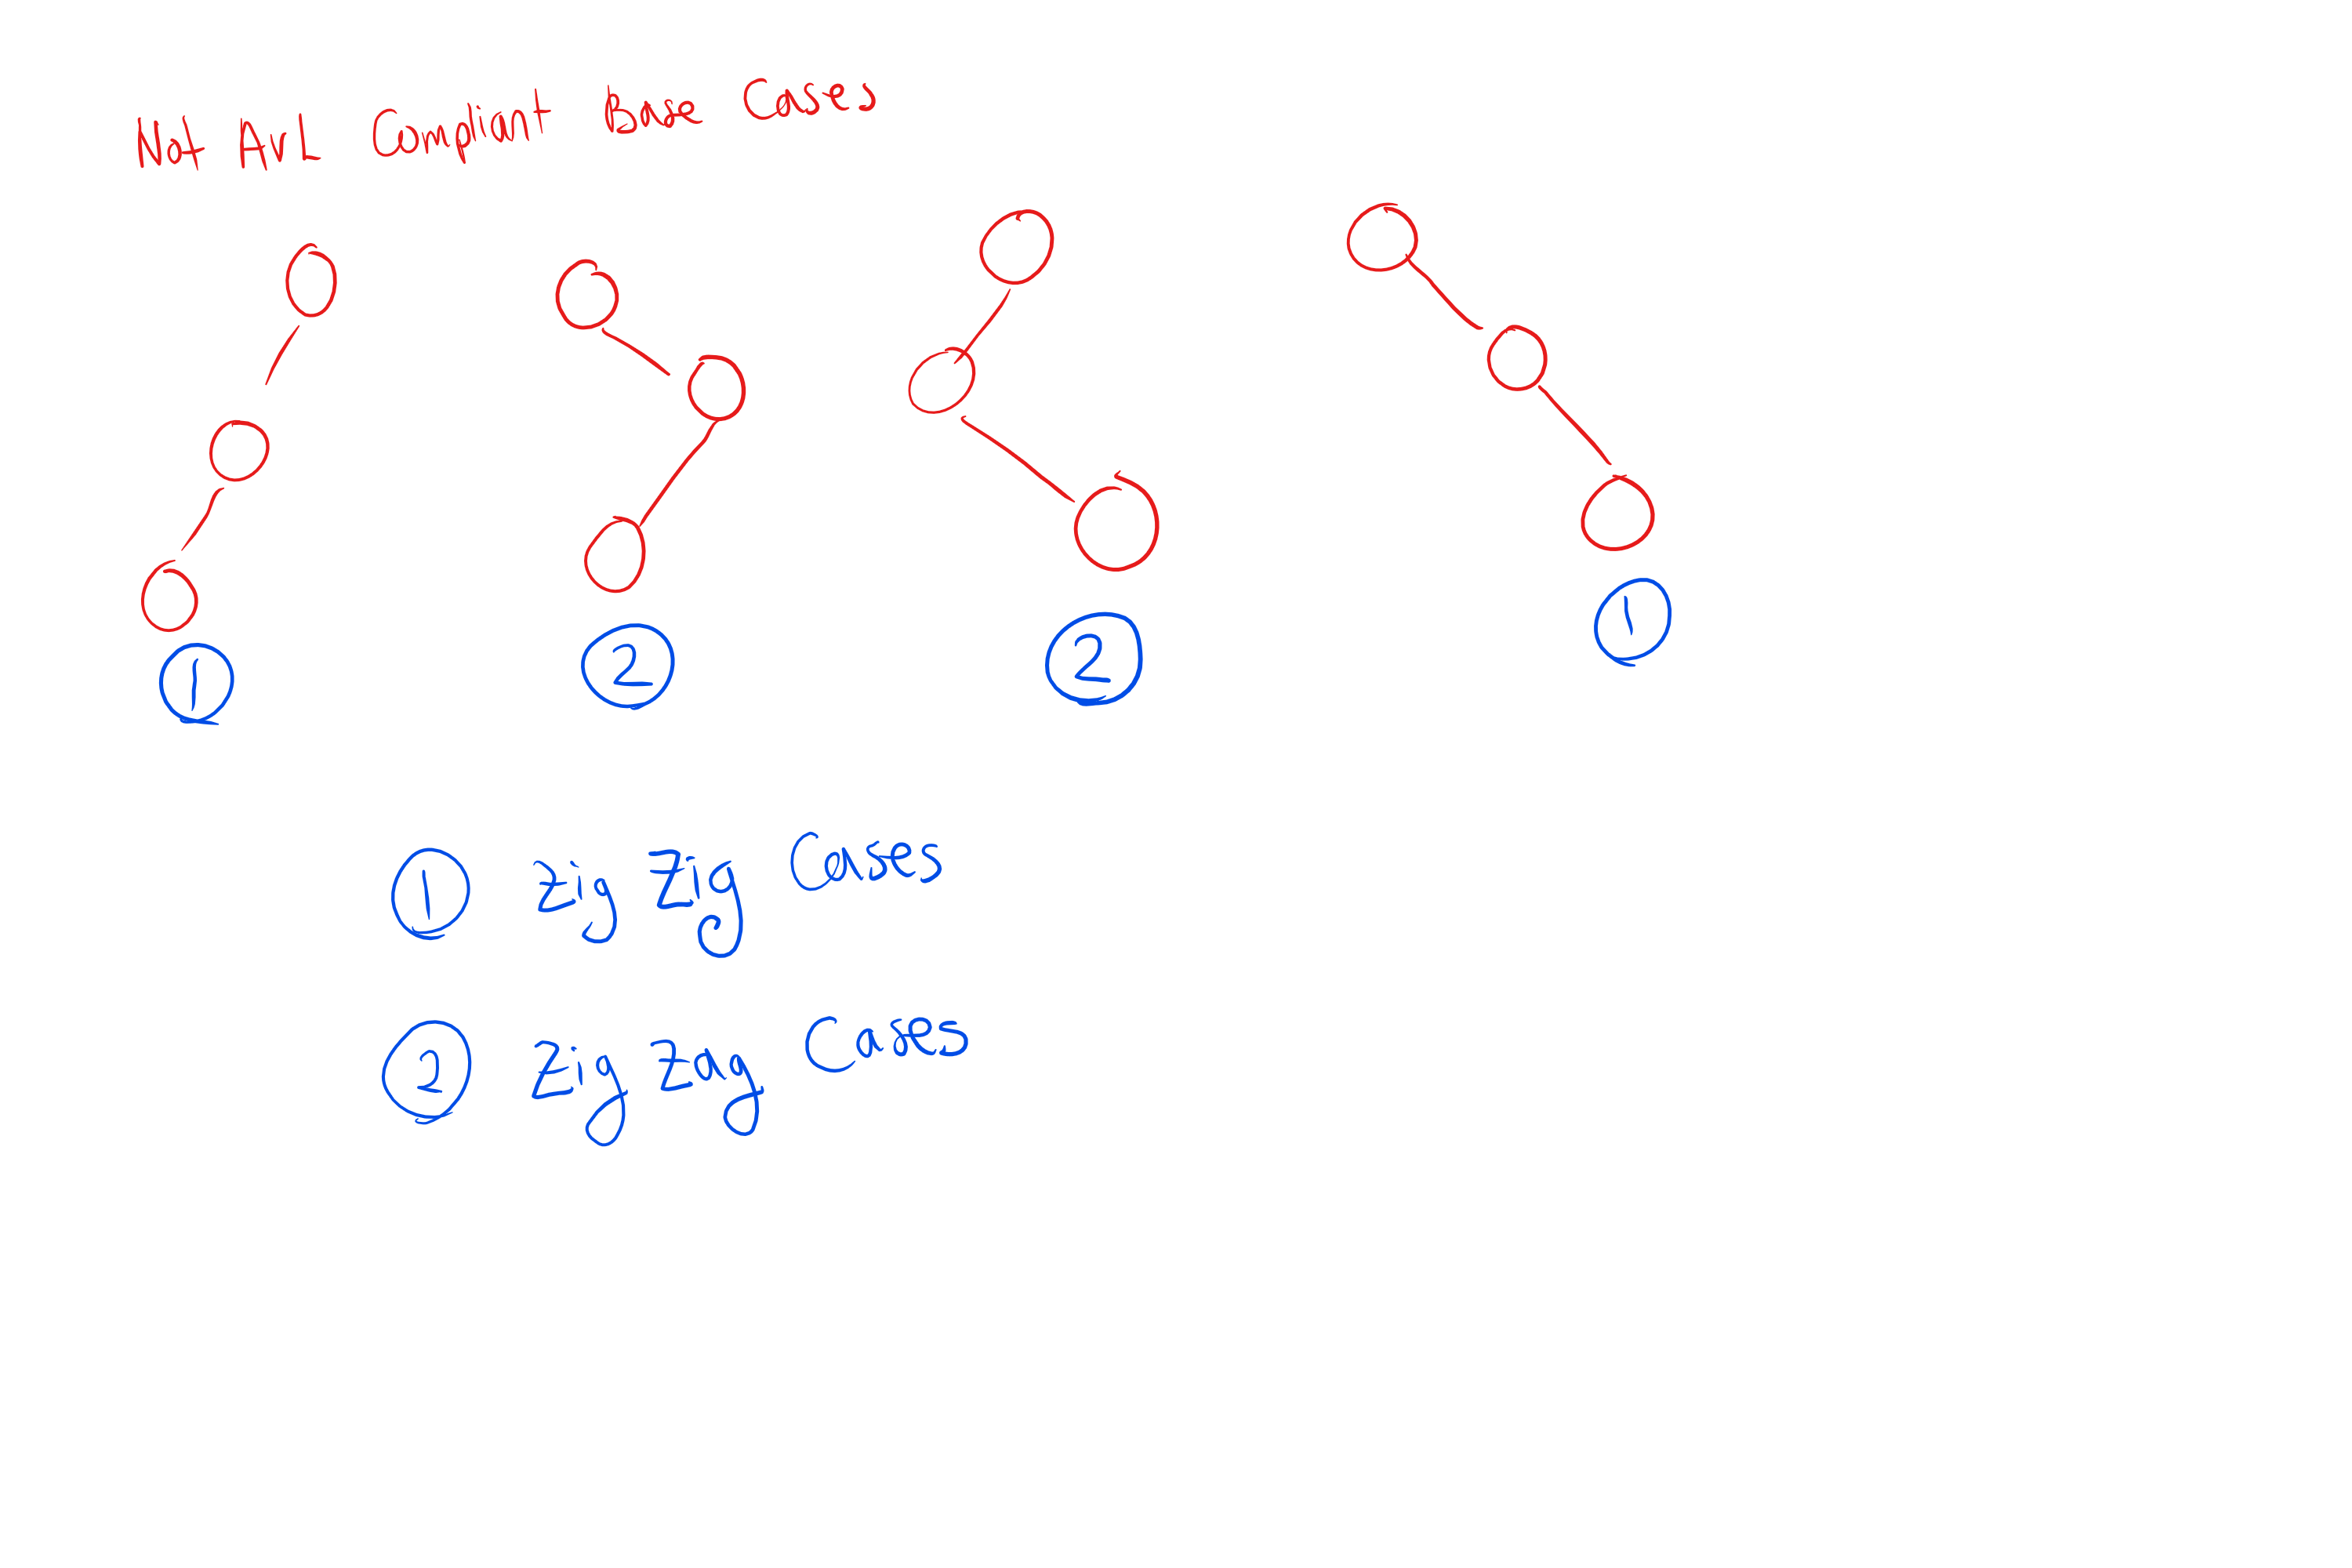 Not AVL Compliant Base Cases
1 2 2 1
1 Zig Zig Cases
2 Zig Zag Cases